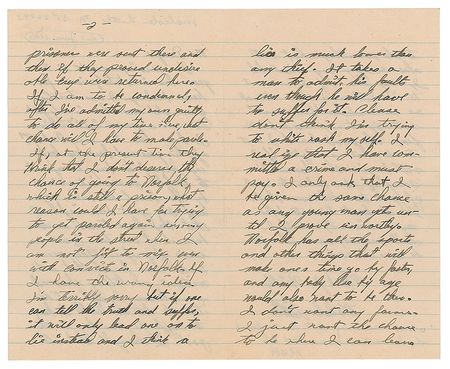 -2-
prisoner ever sent there and
then if they proved undesire
able they were returned here.
If I am to be condemned,
after I've admitted my own guilt,
to do all of my time here, what
chance will I have to make parole.
If, at the present time they
think that I don't deserve the
chance of going to Norfolk,
which is still a prison, what
reason could I have for trying
to get paroled again among
people in the street when I
am not fit to mix even
with convicts in Norfolk. If
I have the wrong idea
I'm terribly sorry but if one
can tell the truth and suffer,
it will only lead one on to
lie instead and I think a
lie is much lower than
any thief. It takes a
man to admit his faults
even though he will have
to suffer for it. Please
don't think I'm trying
to white wash myself. I
realize that I have com-
mitted a crime and must
pay. I only ask that I
be given the same chance
as any young man gets un-
til I prove unworthy.
Norfolk has all the sports
and other things that will
make ones time go by faster,
and any body else by age
would also want to be there.
I don't want any favors
I just want the chance
to be where I can learn